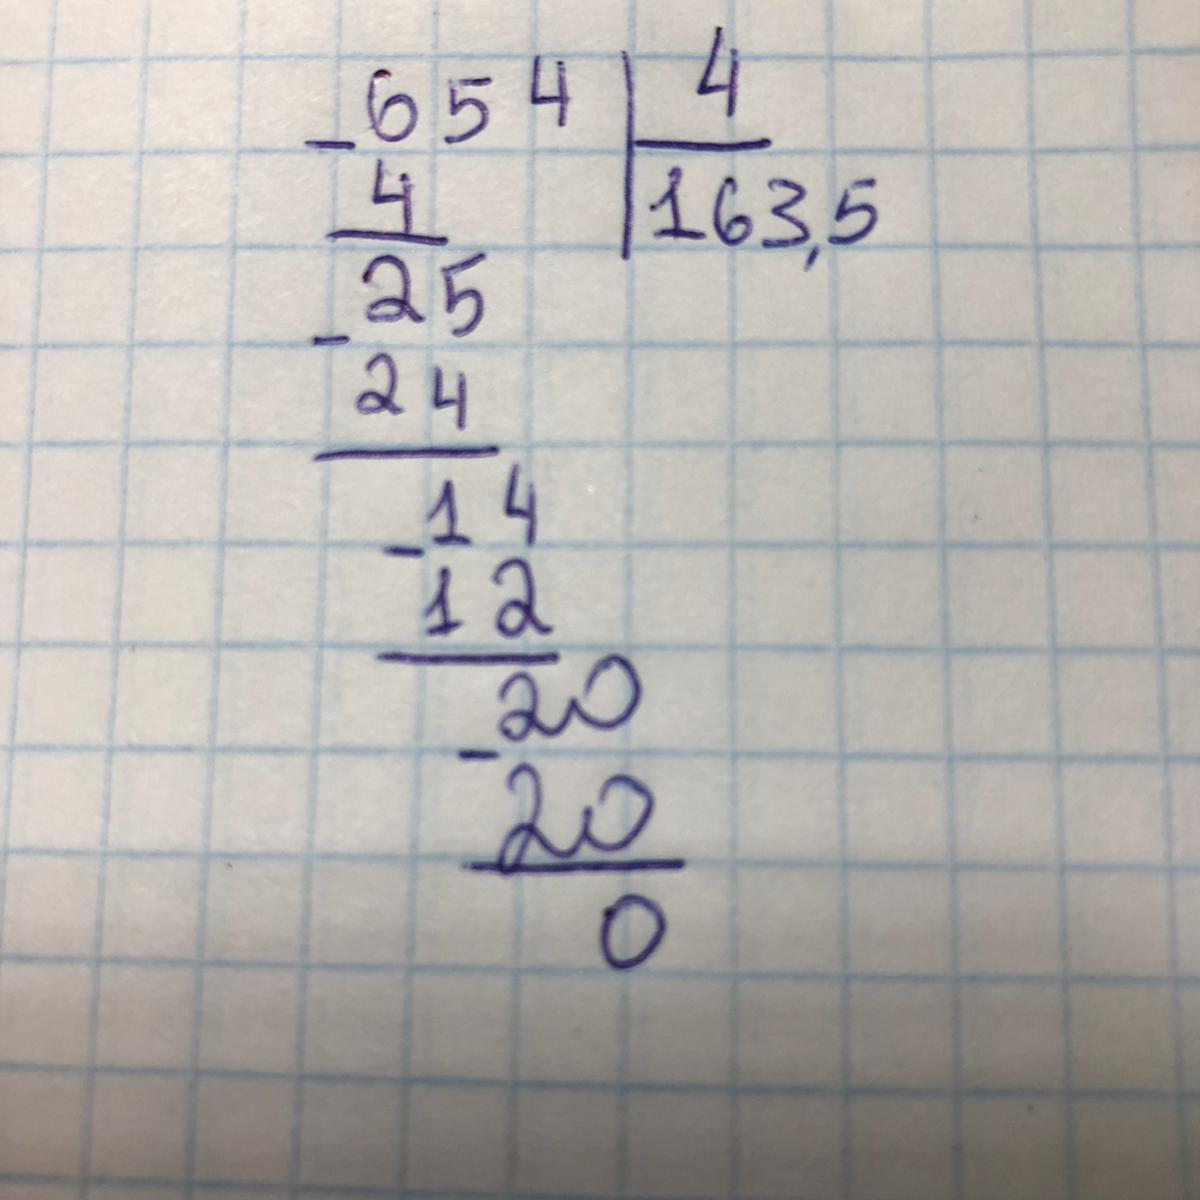 -654 | 4
4 | 163,5
25
-24
-14
12
-20
20
0